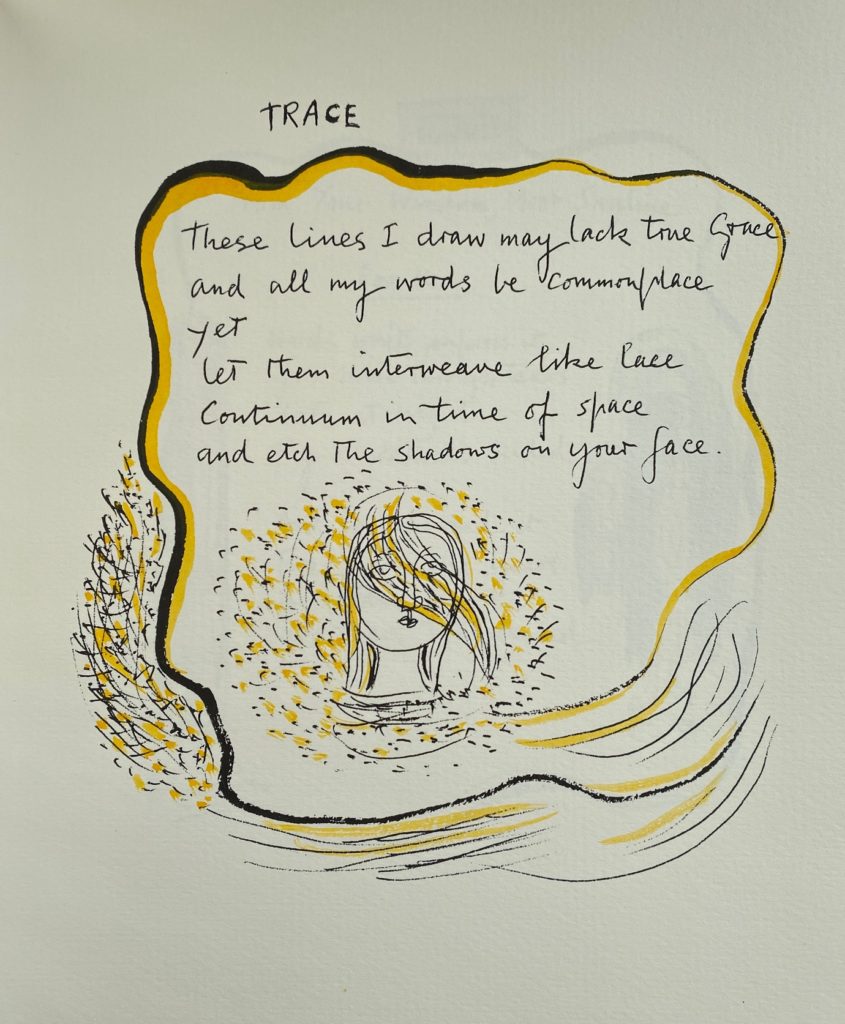 TRACE
These lines I draw may lack true Grace
and all my words be commonplace
yet
let them interweave like lace
Continuum in time of space
and etch the shadows on your face.